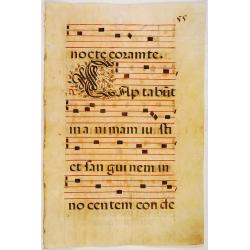 55
nocte coram te.
Captabūt
in animam iusti
et sanguinem in
nocentem conde